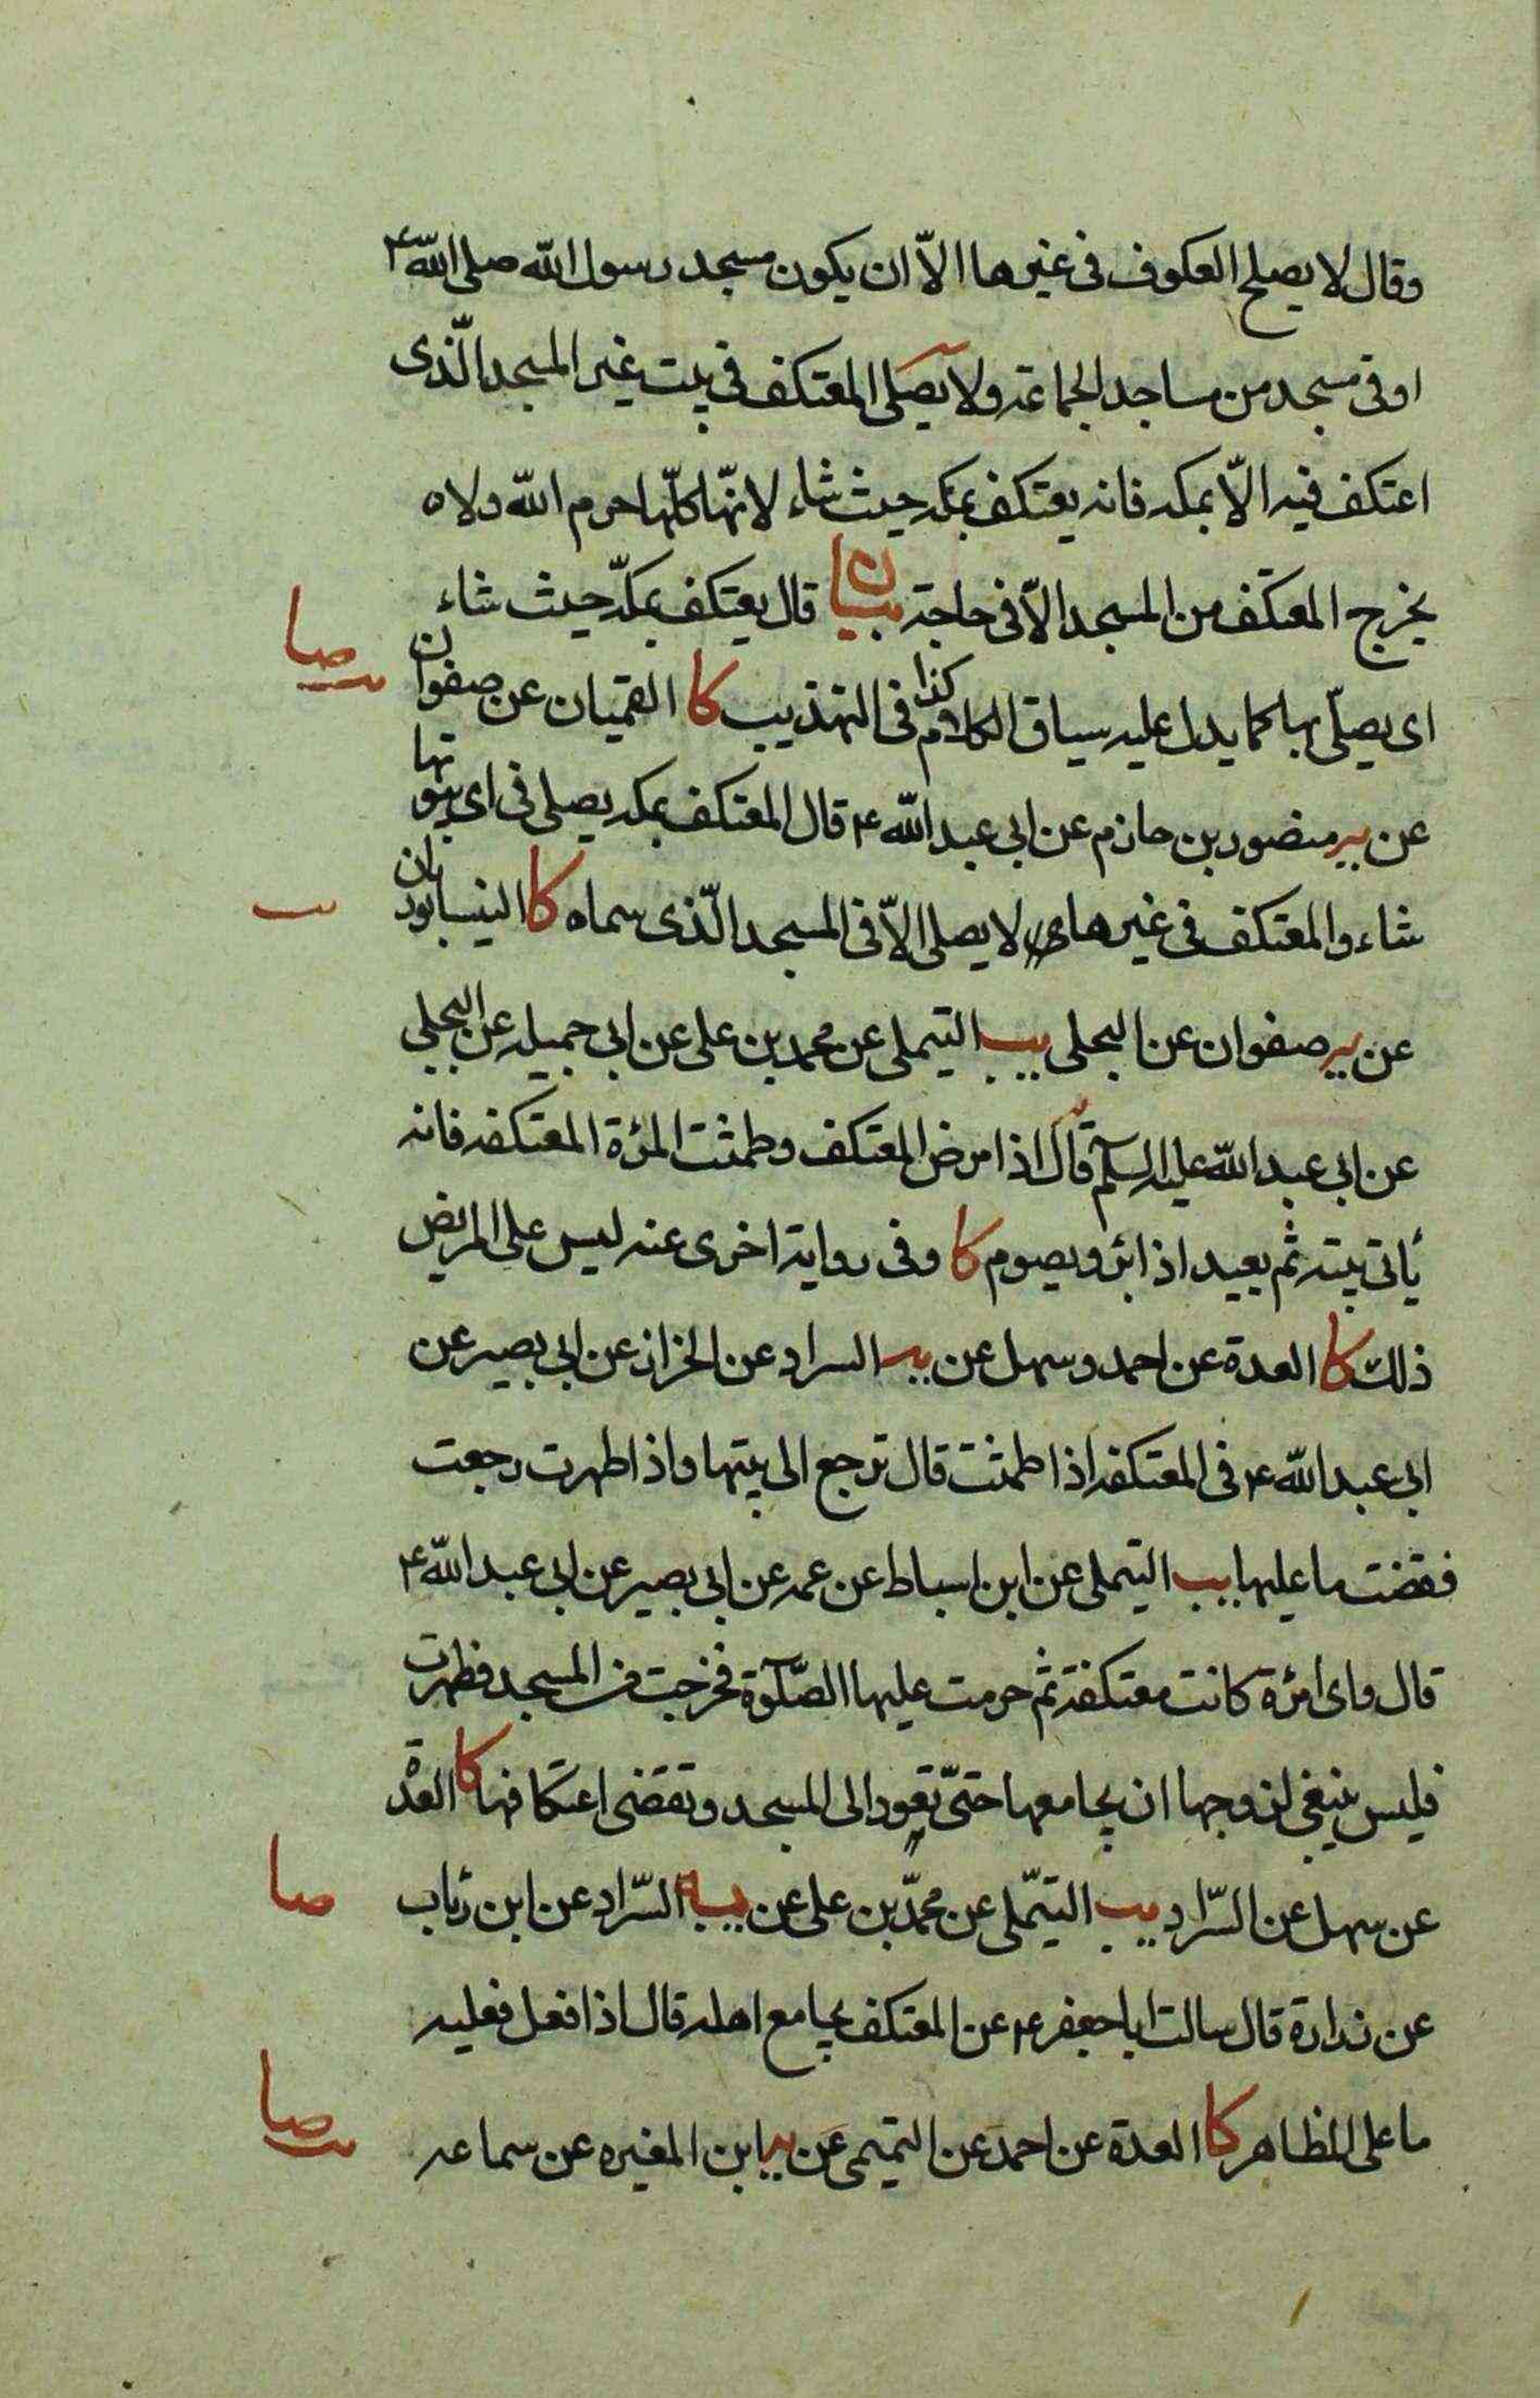 وقال لا يصلح العكوف فى غيرها الاّ ان يكون مسجد رسول الله صلى الله ع
او فى مسجد من مساجد الجماعة ولا يصلى المعتكف فى بيت غير المسجد الّذى
اعتكف فيه الاّ بمكه فانه يعتكف بمكه حيث شاء لانّها كلّها حرم الله ولاه
يخرج المعتكف من المسجد الاّ فى حاجة بيان قال يعتكف بمكّه حيث شاء
صا
اى يصلّى بها كما يدل عليه سياق الكلام كذا فى التهذيب كا القميان عن صفوان
عن يب منصور بن حازم عن ابى عبد الله ع قال المعتكف بمكه يصلى فى اى بيوتها
شاء والمعتكف فى غيرها لا يصلى الاّ فى المسجد الّذى سماه كا النيسابوريان
عن يب صفوان عن البجلى يب التيملى عن محمد بن على عن ابى جميله عن البجلى
عن ابى عبد الله عليه السلم قال اذا مرض المعتكف وطمثت المرئة المعتكفه فانه
يأتى بيته ثم يعيد اذا برئ ويصوم كا وفى رواية اخرى عنه ليس على المريض
ذلك كا العدة عن احمد وسهل عن يب السراد عن الخزاز عن ابى بصير عن
ابى عبد الله ع فى المعتكفه اذا طمثت قال ترجع الى بيتها واذا طهرت رجعت
فقضت ما عليها يب التيملى عن ابن اسباط عن عمه عن ابى بصير عن ابى عبد الله ع
قال واى امرئة كانت معتكفة ثم حرمت عليها الصّلوة فخرجت من المسجد فطهرت
فليس ينبغى لزوجها ان يجامعها حتىّ تعود الى المسجد وتقضى اعتكافها كا العدة
صا
عن سهل عن السّراد يب التيمّلى عن محمّد بن على عن يب السّراد عن ابن رئاب
عن زرارة قال سالت ابا جعفر ع عن المعتكف يجامع اهله قال اذا فعل فعليه
صا
ما على المظاهر كا العدة عن احمد عن التميمى عن يب ابن المغيره عن سماعه